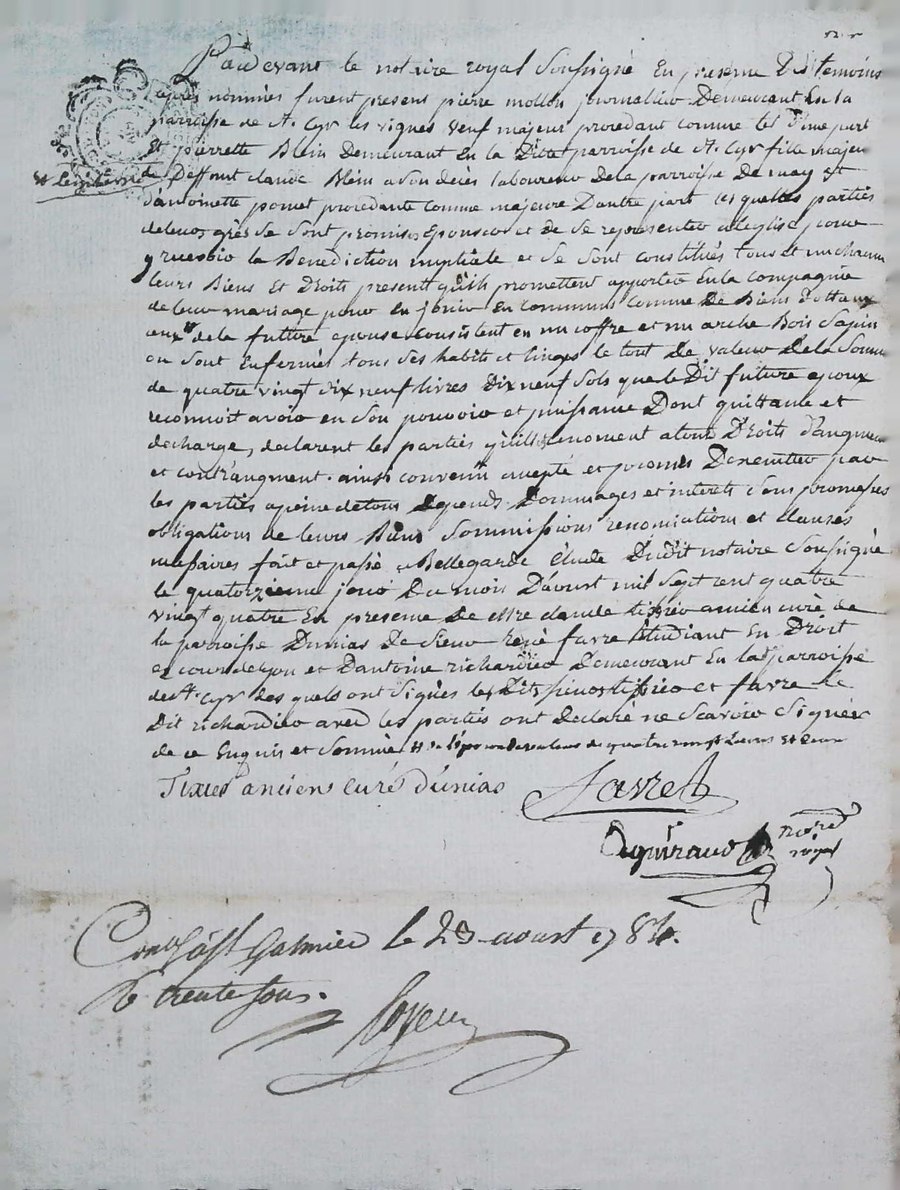 Pardevant le notaire royal soussigné en presence des temoins
après nommés furent present pierre mollon journalier demeurant en la
parroisse de st. Cyr les vignes veuf majeur procedant comme tel d'une part
et pierrette Blein demeurant en la ditte parroisse de st. Cyr fille majeure
de deffunt claude Blein a son décès laboureur de la parroisse de
d'antoinette poncet procedante comme majeure d'autre part les quelles parties
de leurs grès se sont promises epouser et de se representer a l'eglise pour
y recevoir la Benediction nuptiale et se sont constitués tous et un chacun
leurs Biens et Droits present qu'ils promettent apporter en la compagnie
de leur mariage pour en jouir en communs comme de Biens Dottaux
ceux de la future epouse consistent en un coffre et un arche Bois Sapin
ou sont enfermés tous ses habits et linges le tout de valeur de la somme
de quatre vingt dix neuf livres dix neuf sols que le Dit future epoux
reconnoit avoir en son pouvoir et puissance Dont quittance et
decharge, declarent les parties qu'ils renoncent a tous Droits d'augment
et contr'augment. ainsi convenu accepté et promis D'executer par
les parties a peine de tous depends Dommages et interets sous promesses
obligations de leurs Biens Sommissions renonciations et clauses
necessaires fait et passé a Bellegarde étude Dudit notaire soussigné
le quatorzieme jour Du mois D'aoust mil sept cent quatre
vingt quatre en presence De mre claude tixier ancien curé de
la paroisse Dunias De sieur René favre Etudiant en Droit
et D'antoine richardier demeurant en la parroisse
de st. Cyr des quels ont signés les Dits sieurs tixier et favre le
Dit richardier avec les parties ont declaré ne scavoir signer
de ce enquis et sommé
Tixier ancien curé d'unias
favre
notre
royal
Con. à st Galmier le 23 aoust 1784.
R trente sous.